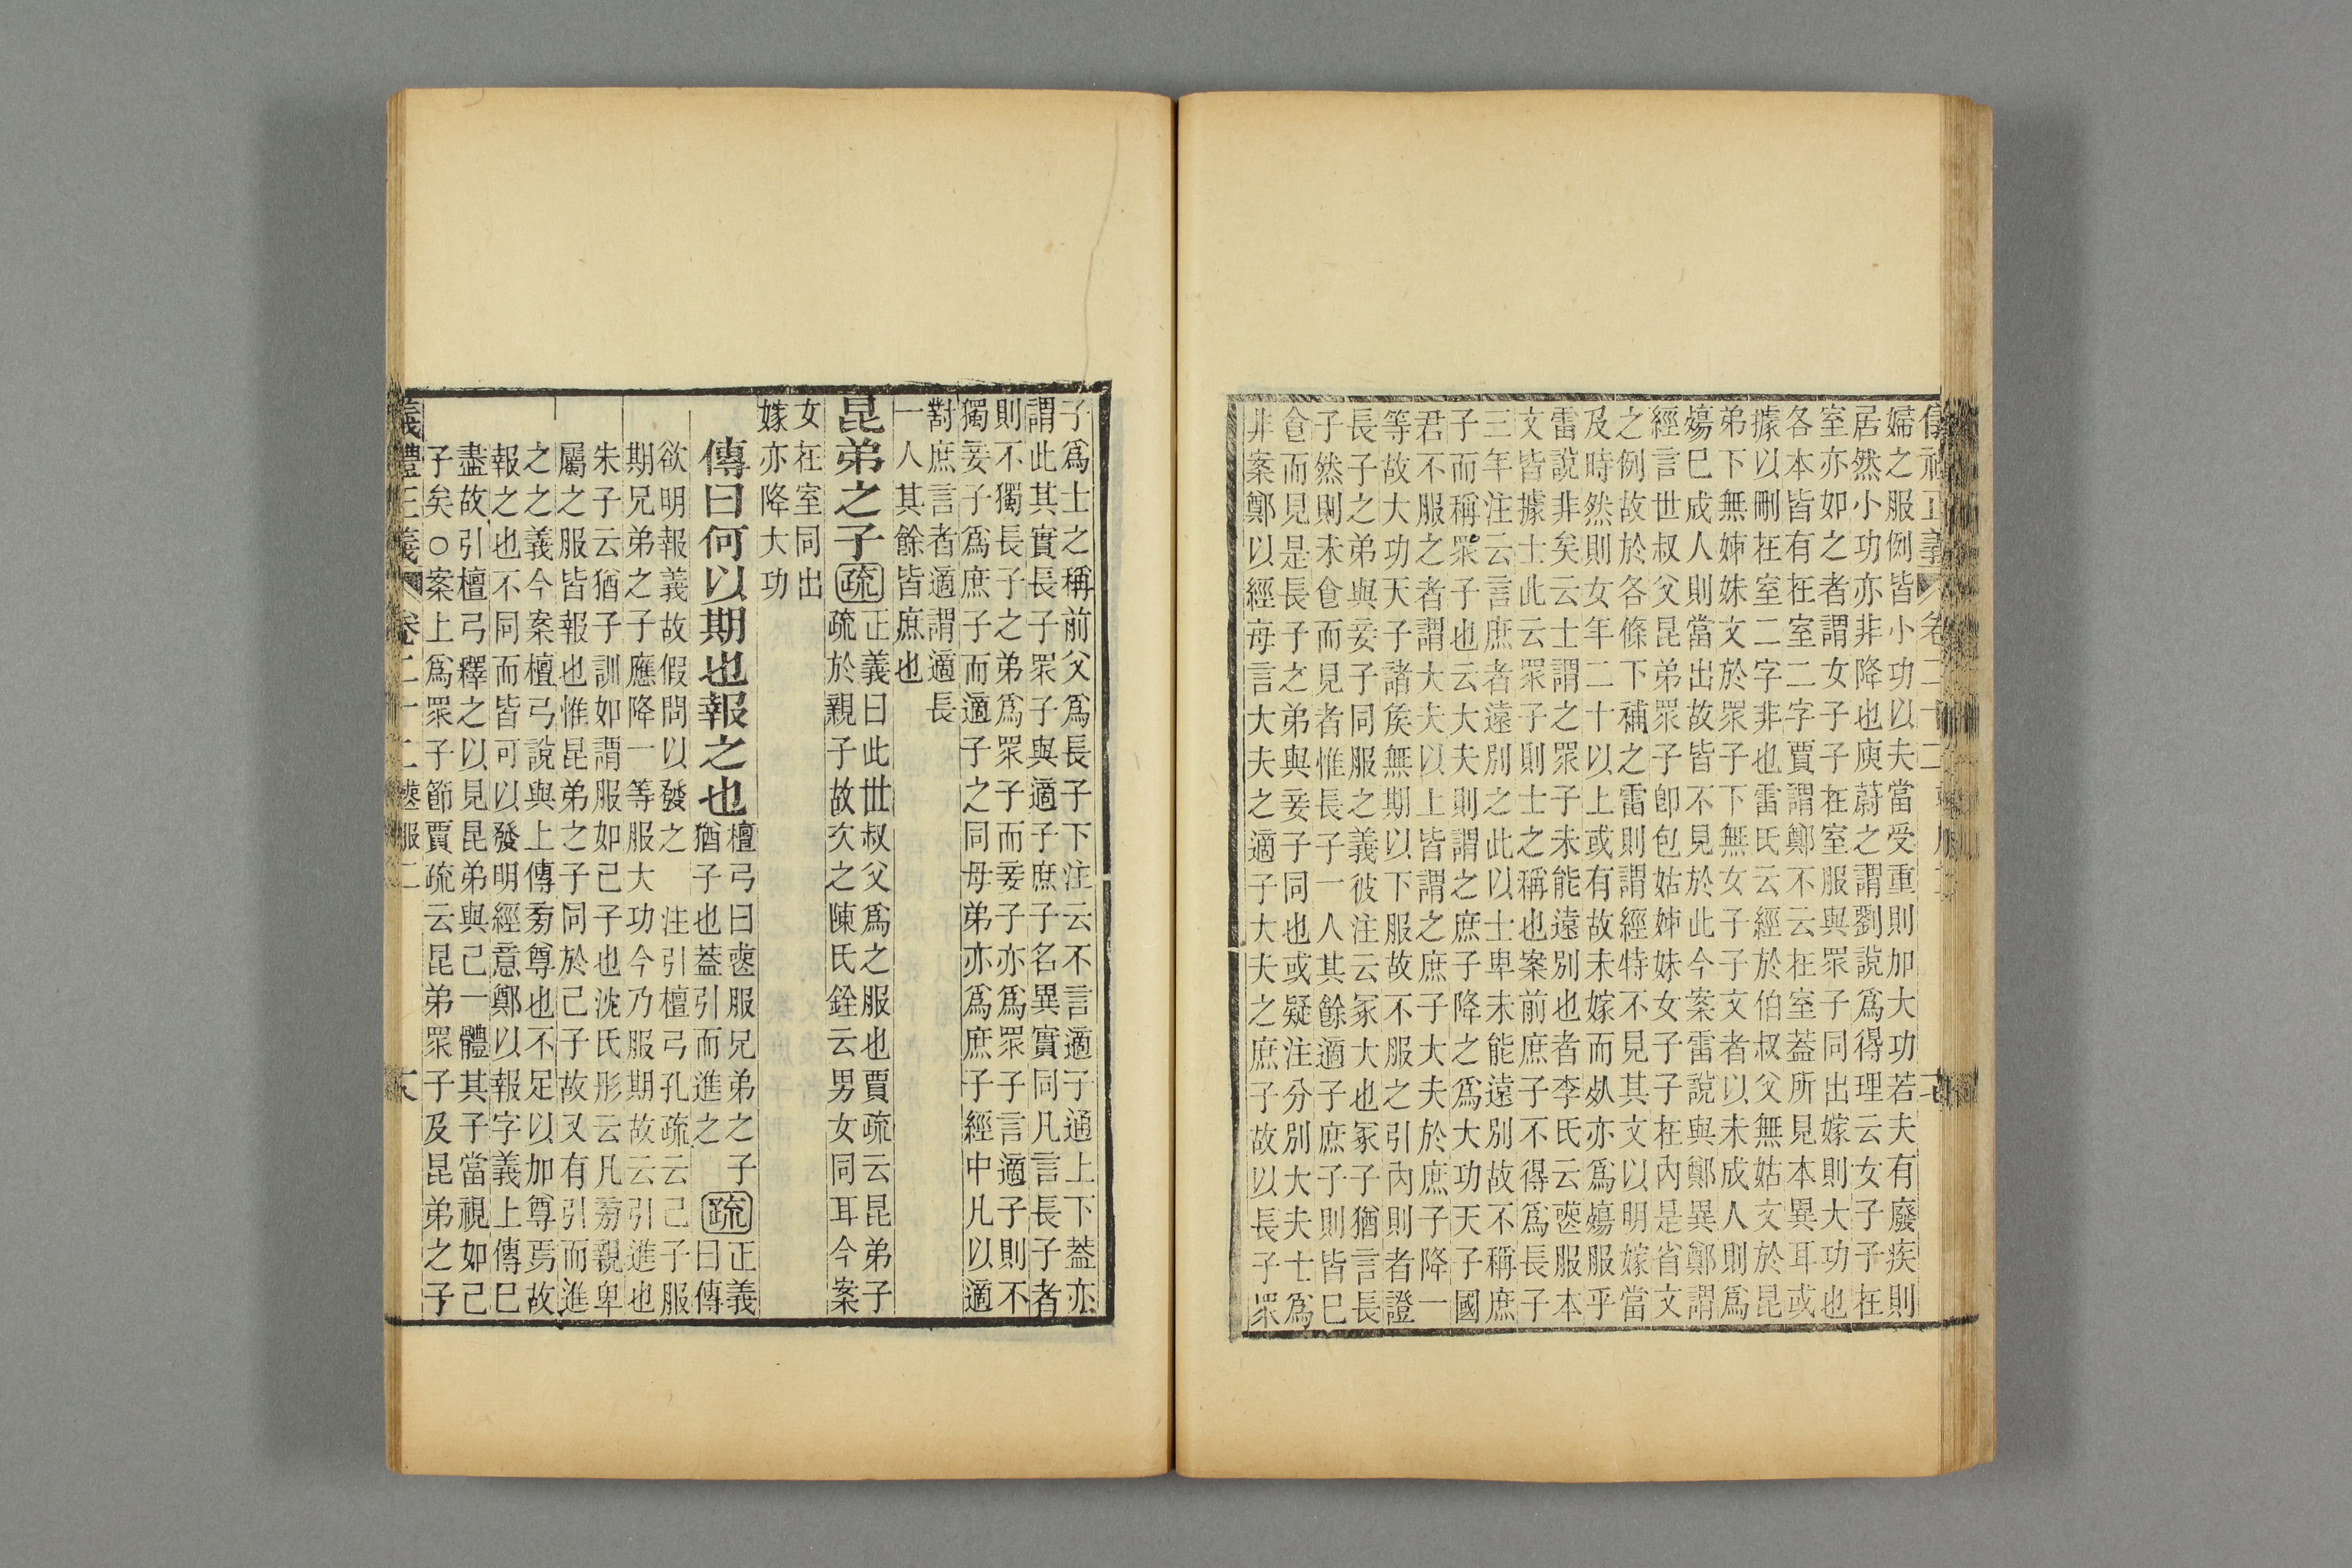 婦之服例皆小功以夫當受重則加大功若夫有廢疾則
居然小功亦非降也庾蔚之謂劉說爲得理云女子子在
室亦如之者謂女子子在室服與眾子同出嫁則大功也
各本皆有在室二字賈謂鄭不云在室蓋所見本異耳或
據以刪在室二字非也雷氏云經於伯叔父無姑文於昆
弟下無姊妹文於眾子下無女子子文者以未成人則爲
殤已成人則當出故皆不見於此今案雷說與鄭異鄭謂
經言世叔父昆弟眾子卽包姑姊妹女子子在內是省文
之例故於各條下補之雷則謂經特不見其文以明嫁當
及時然則女年二十以上或有故未嫁而死亦爲殤服乎
雷說非矣云士謂之眾子未能遠別也者李氏云喪服本
文皆據士此云眾子則士之稱也案前庶子不得爲長子
三年注云言庶者遠別之此以士卑未能遠別故不稱庶
子而稱眾子也云大夫則謂之庶子降之爲大功天子國
君不服之者謂大夫以上皆謂之庶子大夫於庶子降一
等故大功天子諸矦無期以下服故不服之引內則者證
長子之弟與妾子同服之義彼注云冢大也冢子猶言長
子然則未食而見者惟長子一人其餘適子庶子則皆已
食而見是長子之弟與妾子同也或疑注分別大夫士爲
非案鄭以經每言大夫之適子大夫之庶子故以長子眾
子爲士之稱前父爲長子下注云不言適子通上下蓋亦
謂此其實長子眾子與適子庶子名異實同凡言長子者
則不獨長子之弟爲眾子而妾子亦爲眾子言適子則不
獨妾子爲庶子而適子之同母弟亦爲庶子經中凡以適
對庶言者適謂適長
一人其餘皆庶也
昆弟之子 疏 正義曰此世叔父爲之服也賈疏云昆弟子
疏於親子故次之陳氏銓云男女同耳今案
女在室同出
嫁亦降大功
傳曰何以期也報之也 檀弓曰喪服兄弟之子
猶子也蓋引而進之 疏 正義
曰傳
欲明報義故假問以發之 注引檀弓孔疏云己子服
期兄弟之子應降一等服大功今乃服期故云引進也
朱子云猶子訓如謂服如己子也沈氏彤云凡旁親卑
屬之服皆報也惟昆弟之子同於己子故又有引而進
之之義今案檀弓說與上傳旁尊也不足以加尊焉故
報之也不同而皆可以發明經意鄭以報字義上傳已
盡故引檀弓釋之以見昆弟與己一體其子當視如己
子矣○案上爲眾子節賈疏云昆弟眾子及昆弟之子
義禮正義 卷二十二 喪服二